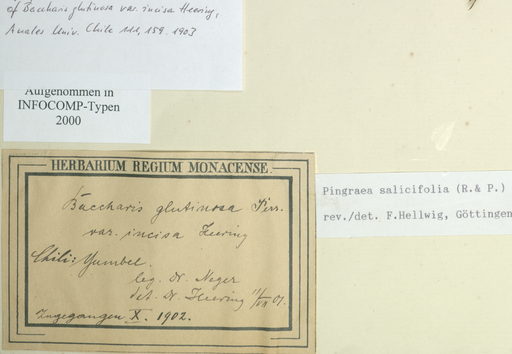 cf Baccharis glutinosa var. incisa Heering,
Anales Univ. Chile 111, 159. 1903
Aufgenommen in
INFOCOMP-Typen
2000
HERBARIUM REGIUM MONACENSE.
Baccharis glutinosa Pers.
var. incisa Heering
Chili: Yumbel.
leg. Dr. Neger
det. Dr. Heering 11/VII 01.
Zugegangen X. 1902.
Pingraea salicifolia (R.& P.)
rev./det. F.Hellwig, Göttingen